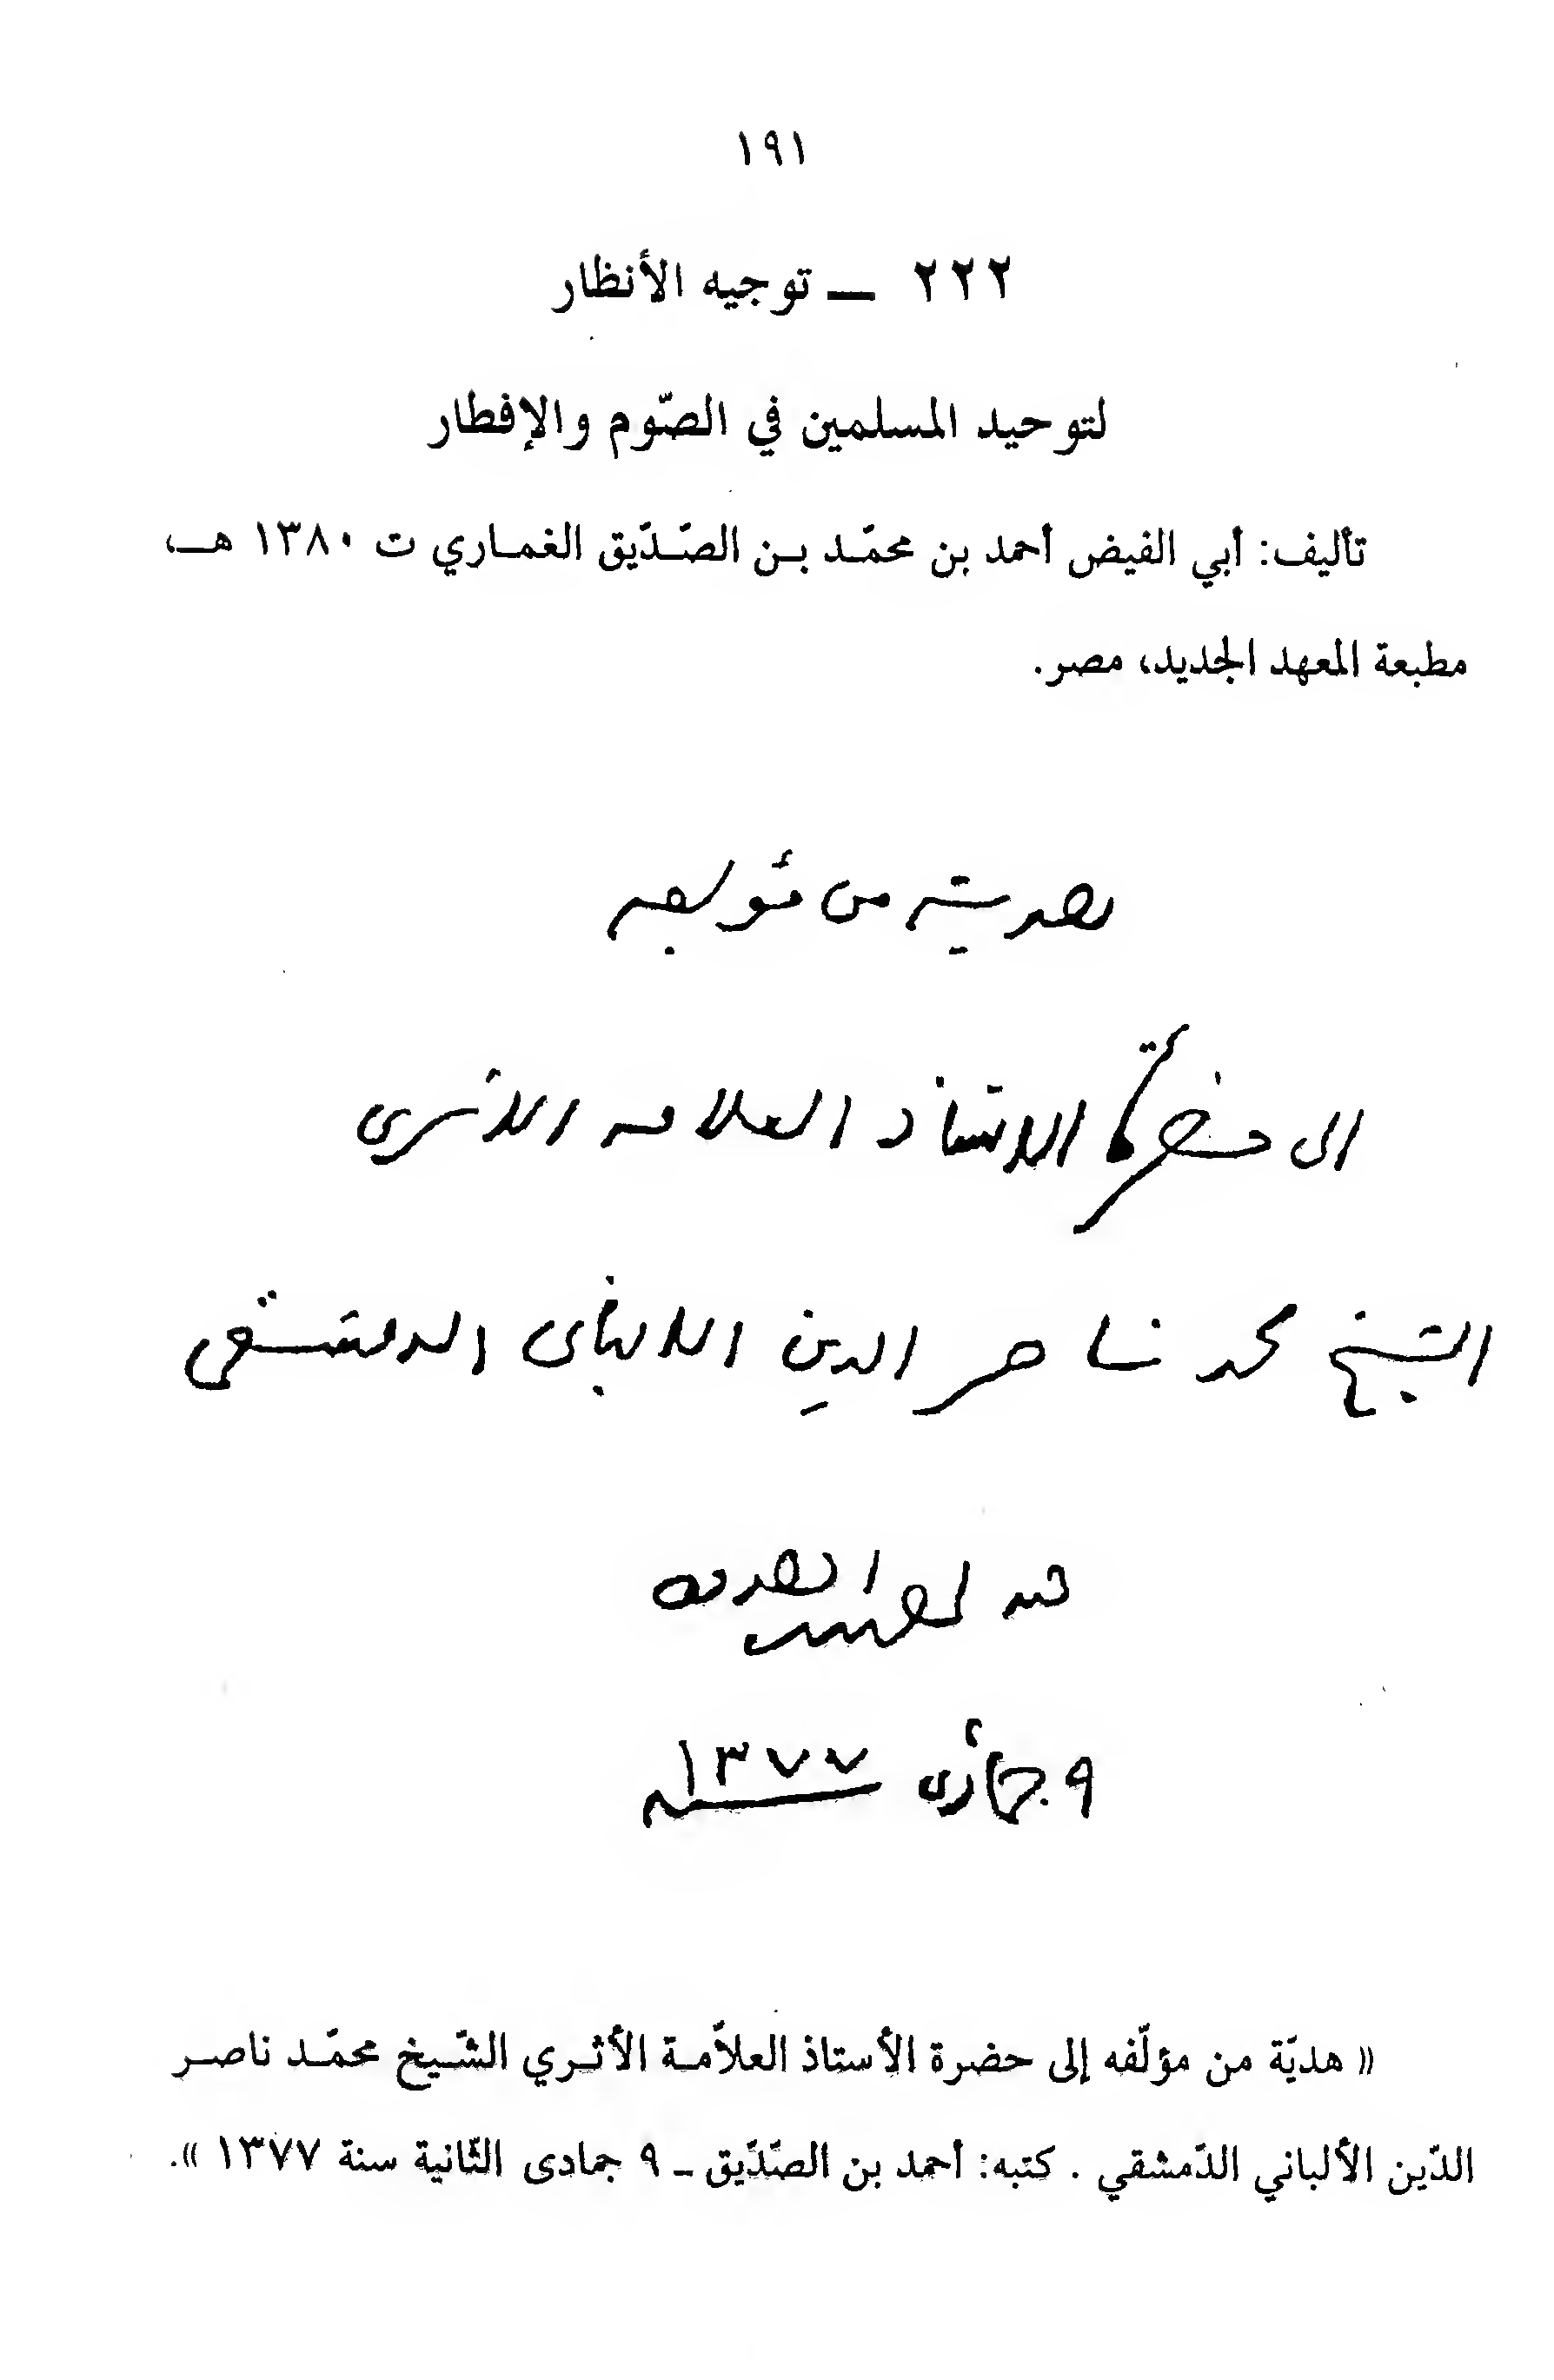 ١٩١
٢٢٢ ــ توجيه الأنظار
لتوحيد المسلمين في الصّوم والإفطار
تأليف: أبي الفيض أحمد بن محمّـد بـن الصّـدّيق الغمـاري ت ١٣٨٠ هــ،
مطبعة المعهد الجديد، مصر.
هدية من مؤلفه
الى حضرة الاستاذ العلامه الاثرى
الشيخ محمد ناصر الدين الالبانى الدمشقى
كتبه احمد بن الصديق
٩ جمادى ١٣٧٧
« هديّة من مؤلّفه إلى حضرة الأستاذ العلاّمـة الأثـري الشّـيخ محمّـد ناصـر
الدّين الألباني الدّمشقي . كتبه: أحمد بن الصّدّيق ـ ٩ جمادى الثّانية سنة ١٣٧٧ ».